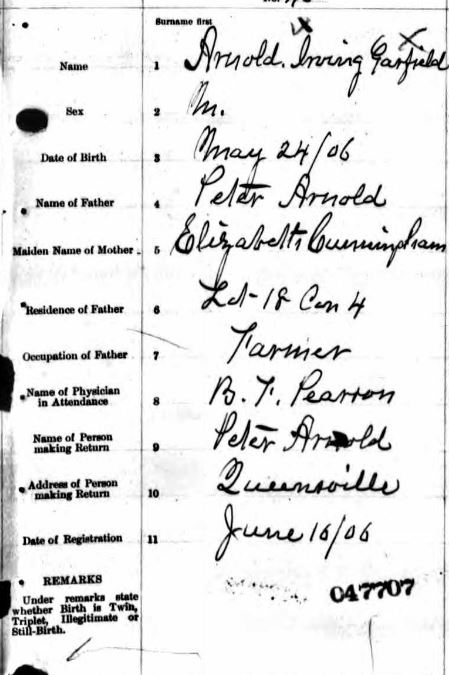 Surname first
Name 1 Arnold. Irving Garfield
Sex 2 M.
Date of Birth 3 May 24/06
Name of Father 4 Peter Arnold
Maiden Name of Mother 5 Elizabeth Cunningham
Residence of Father 6 Lot 18 Con 4
Occupation of Father 7 Farmer
Name of Physician
in Attendance 8 B. F. Pearson
Name of Person
making Return 9 Peter Arnold
Address of Person
making Return 10 Queensville
Date of Registration 11 June 16/06
REMARKS
Under remarks state
whether Birth is Twin,
Triplet, Illegitimate or
Still-Birth.
047707